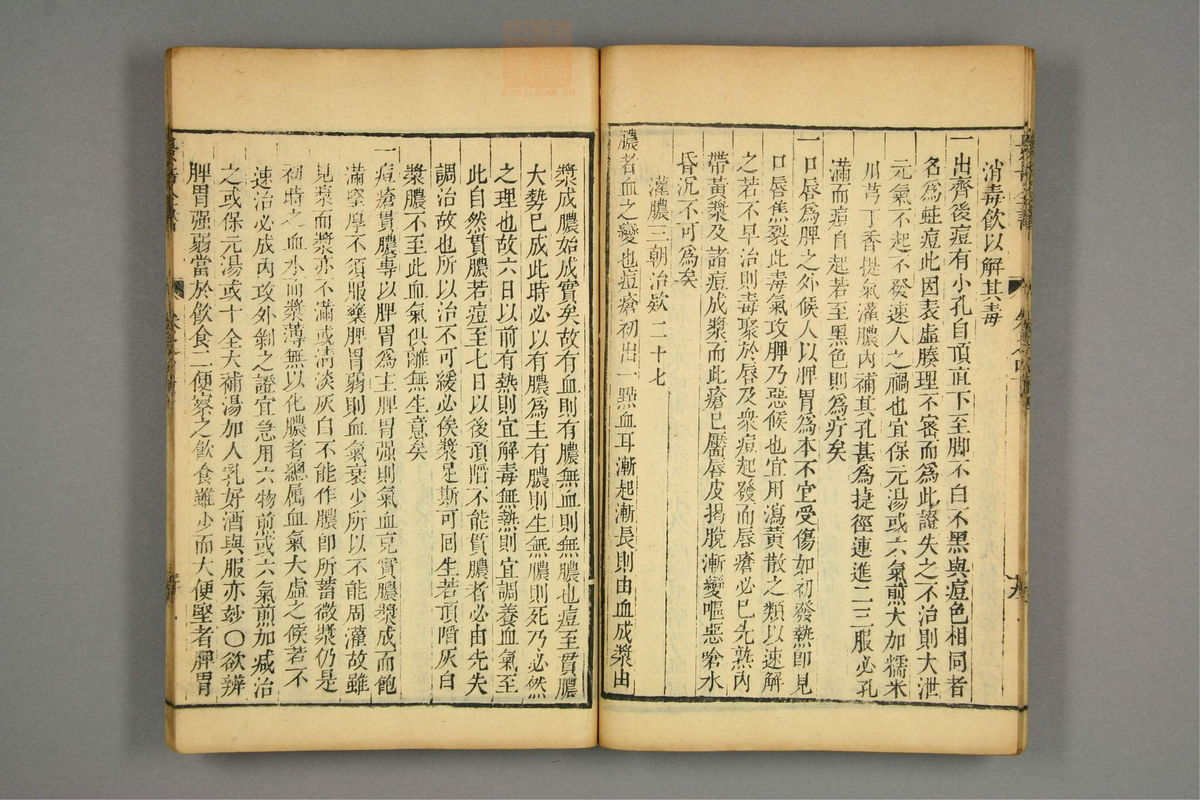 消毒飲以解其毒
一出齊後痘有小孔自頂直下至脚不白不黑與痘色相同者
名為蛀痘此因表虛腠理不密而為此證失之不治則大泄
元氣不起不發速人之禍也宜保元湯或六氣煎大加糯米
川芎丁香提氣灌膿內補其孔甚為捷徑連進二三服必孔
滿而痘自起若至黑色則為疔矣
一口唇為脾之外候人以脾胃為本不宜受傷如初發熱即見
口唇焦裂此毒氣攻脾乃惡候也宜用瀉黃散之類以速解
之若不早治則毒聚於唇及衆痘起發而唇瘡必已先熟內
帶黃漿及諸痘成漿而此瘡已靨唇皮揭脫漸變嘔惡嗆水
昏沉不可為矣
灌膿三朝治欵二十七
膿者血之變也痘瘡初出一點血耳漸起漸長則由血成漿由
漿成膿始成實矣故有血則有膿無血則無膿也痘至貫膿
大勢已成此時必以有膿為主有膿則生無膿則死乃必然
之理也故六日以前有熱則宜解毒無熱則宜調養血氣至
此自然貫膿若痘至七日以後頂䧟不能貫膿者必由先失
調治故也所以治不可緩必俟漿足斯可回生若頂䧟灰白
漿膿不至此血氣俱離無生意矣
一痘瘡貫膿專以脾胃為主脾胃强則氣血充實膿漿成而飽
滿堅厚不須服藥脾胃弱則血氣衰少所以不能周灌故雖
見痘而漿亦不滿或清淡灰白不能作膿即所蓄微漿仍是
初時之血水而漿薄無以化膿者總屬血氣大虛之候若不
速治必成內攻外剝之證宜急用六物煎或六氣煎加减治
之或保元湯或十全大補湯加人乳好酒與服亦妙〇欲辨
脾胃强弱當於飲食二便察之飲食雖少而大便堅者脾胃